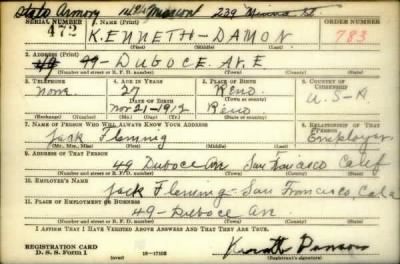 State Armory 14th Mission
SERIAL NUMBER 1. NAME (Print) ORDER NUMBER
472 KENNETH-DAMON 783
(First) (Middle) (Last)
2. ADDRESS (Print)
49 - DUBOCE. AVE
(Number and street or R. F. D. number) (Town) (County) (State)
3. TELEPHONE 4. AGE IN YEARS 5. PLACE OF BIRTH 6. COUNTRY OF CITIZENSHIP
None 27 Reno. U-S-A.
DATE OF BIRTH (Town or county)
Nov 21-1912 Reno
(Exchange) (Number) (Mo.) (Day) (Yr.) (State or country)
7. NAME OF PERSON WHO WILL ALWAYS KNOW YOUR ADDRESS 8. RELATIONSHIP OF THAT PERSON
Jack Fleming Employer.
(Mr., Mrs., Miss) (First) (Middle) (Last)
9. ADDRESS OF THAT PERSON
49 Duboce Ave San Francisco Calif
(Number and street or R. F. D. number) (Town) (County) (State)
10. EMPLOYER'S NAME
Jack Fleming - San Francisco, Cala
11. PLACE OF EMPLOYMENT OR BUSINESS
49-Duboce Ave
(Number and street or R. F. D. number) (Town) (County) (State)
I AFFIRM THAT I HAVE VERIFIED ABOVE ANSWERS AND THAT THEY ARE TRUE.
REGISTRATION CARD
D. S. S. Form 1 (over) 16-17105 (Registrant's signature)
Kenneth Damon